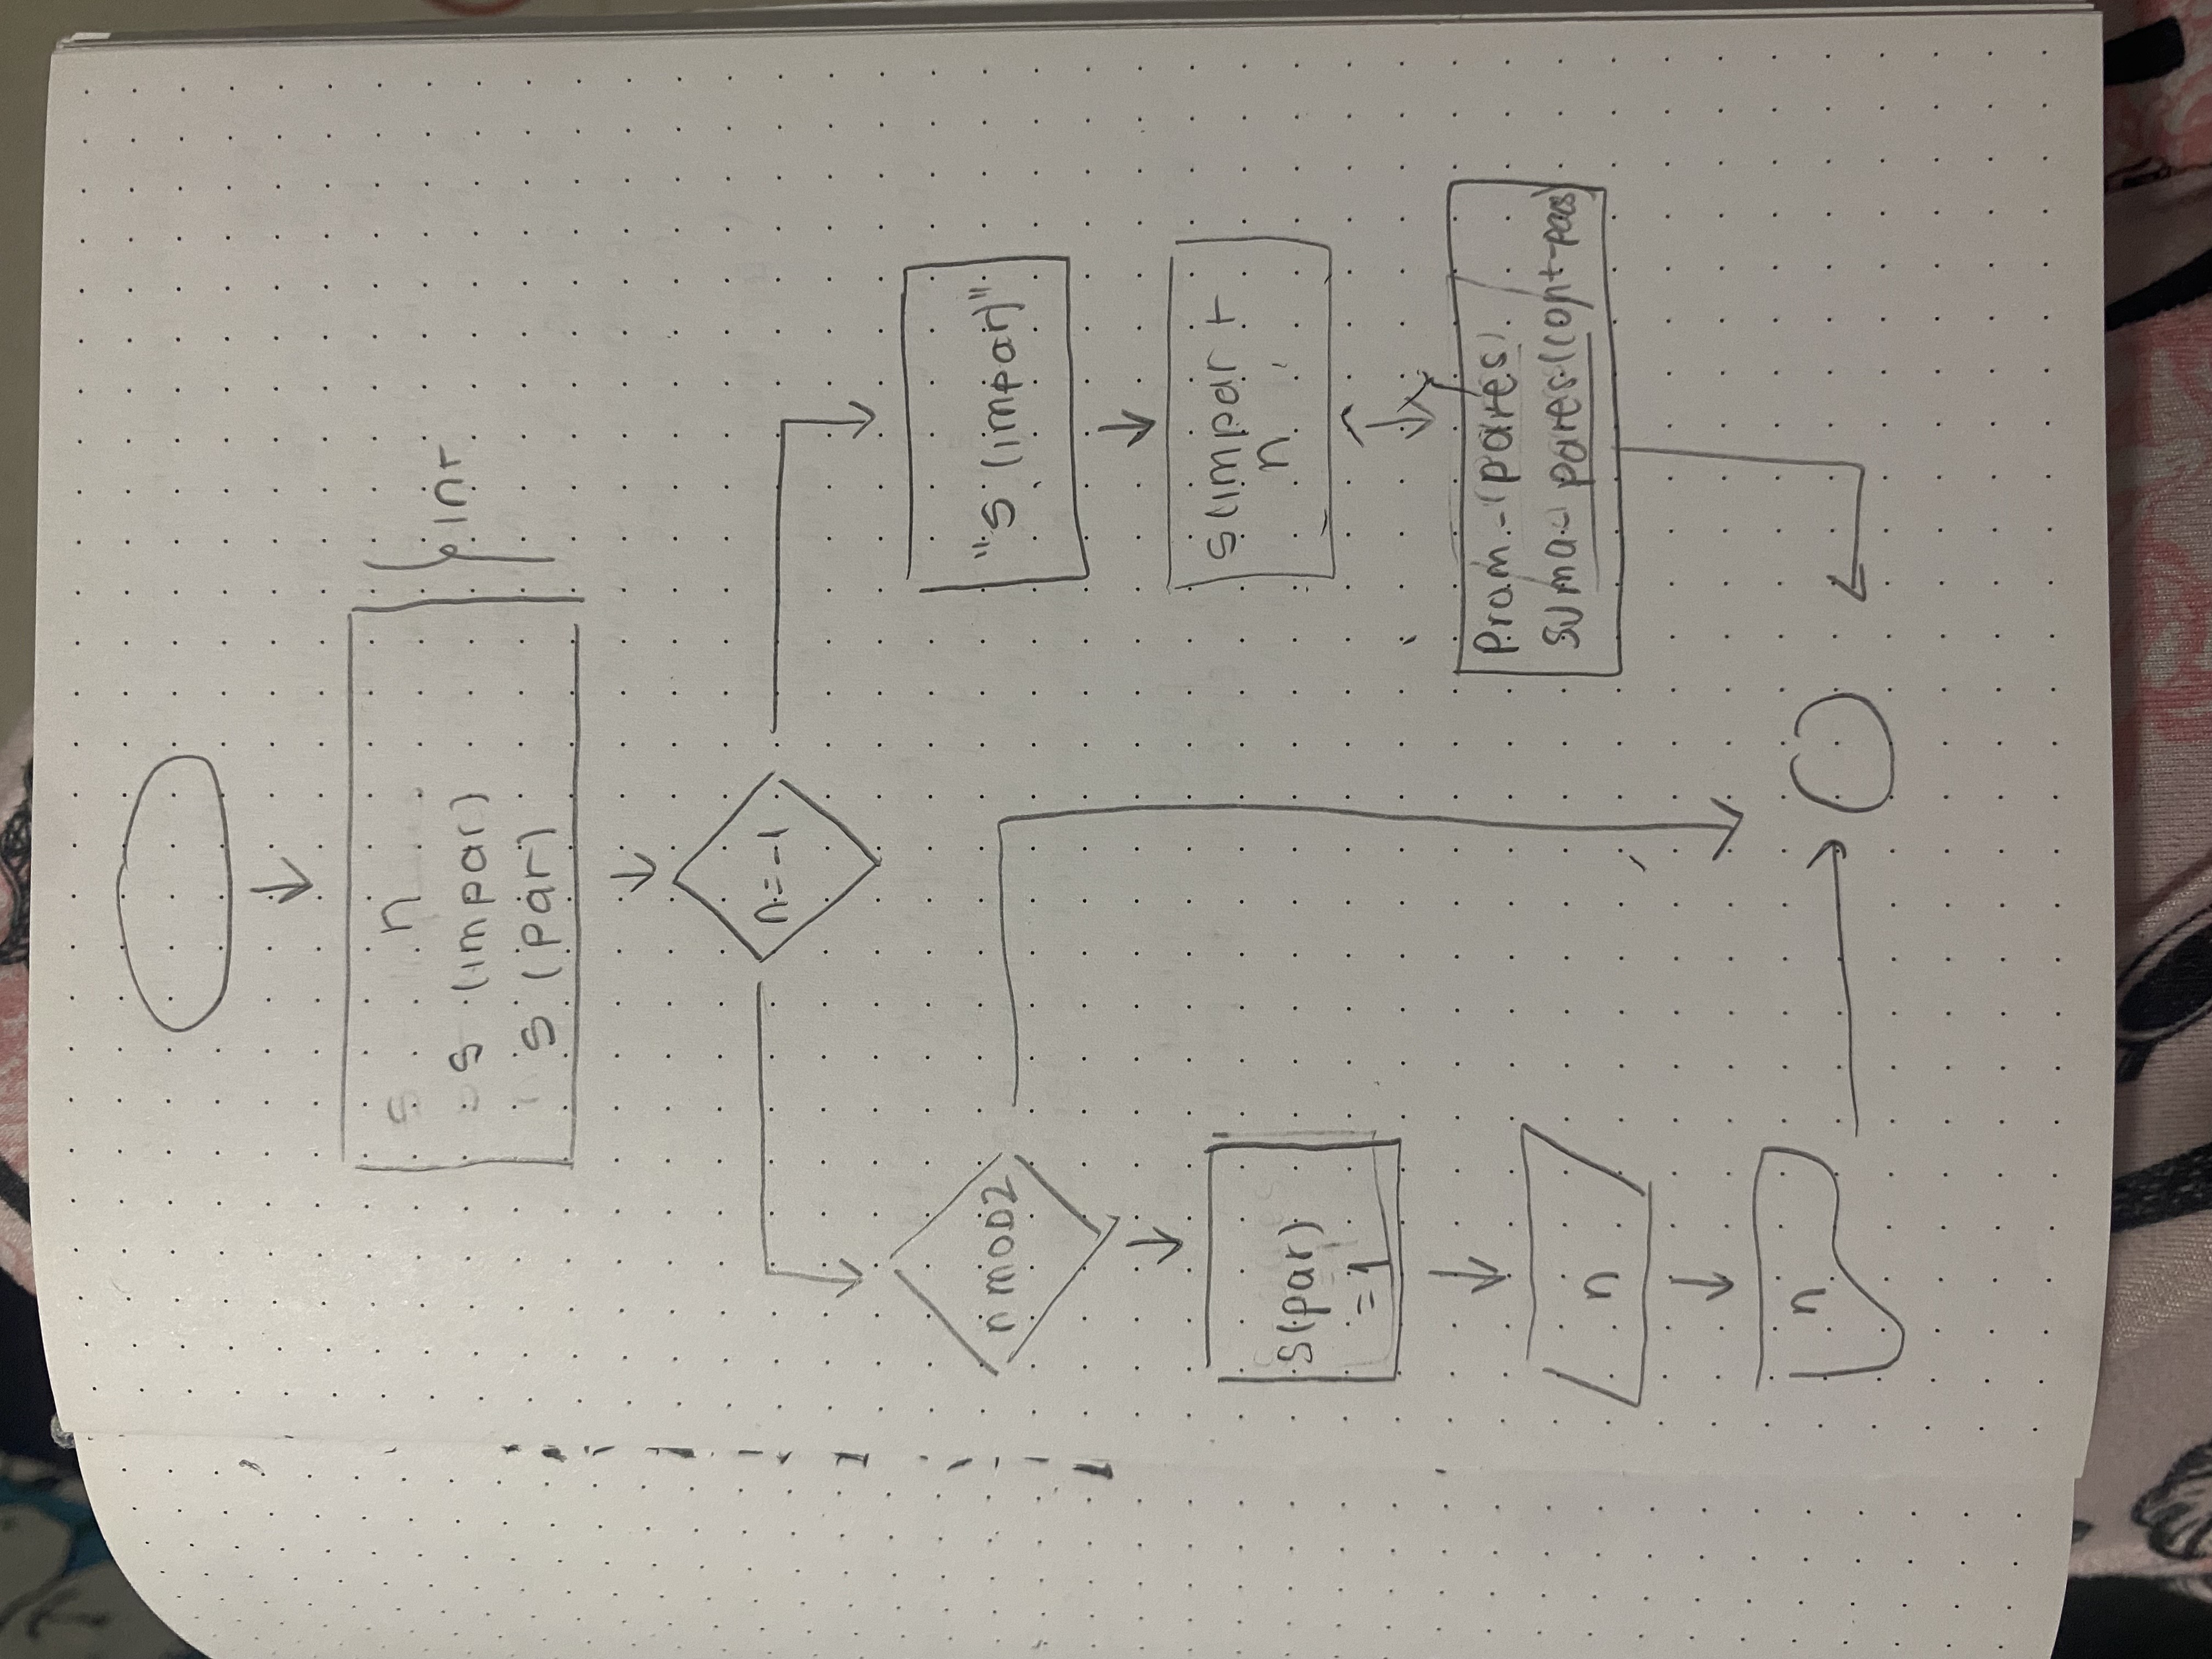 n
s (impar)
s (par)
int
n=-1
n MOD2
"s (impar)"
s(par)
=1
s(impar +
n
n
Prom-(pares)
suma-pares(cont-
n